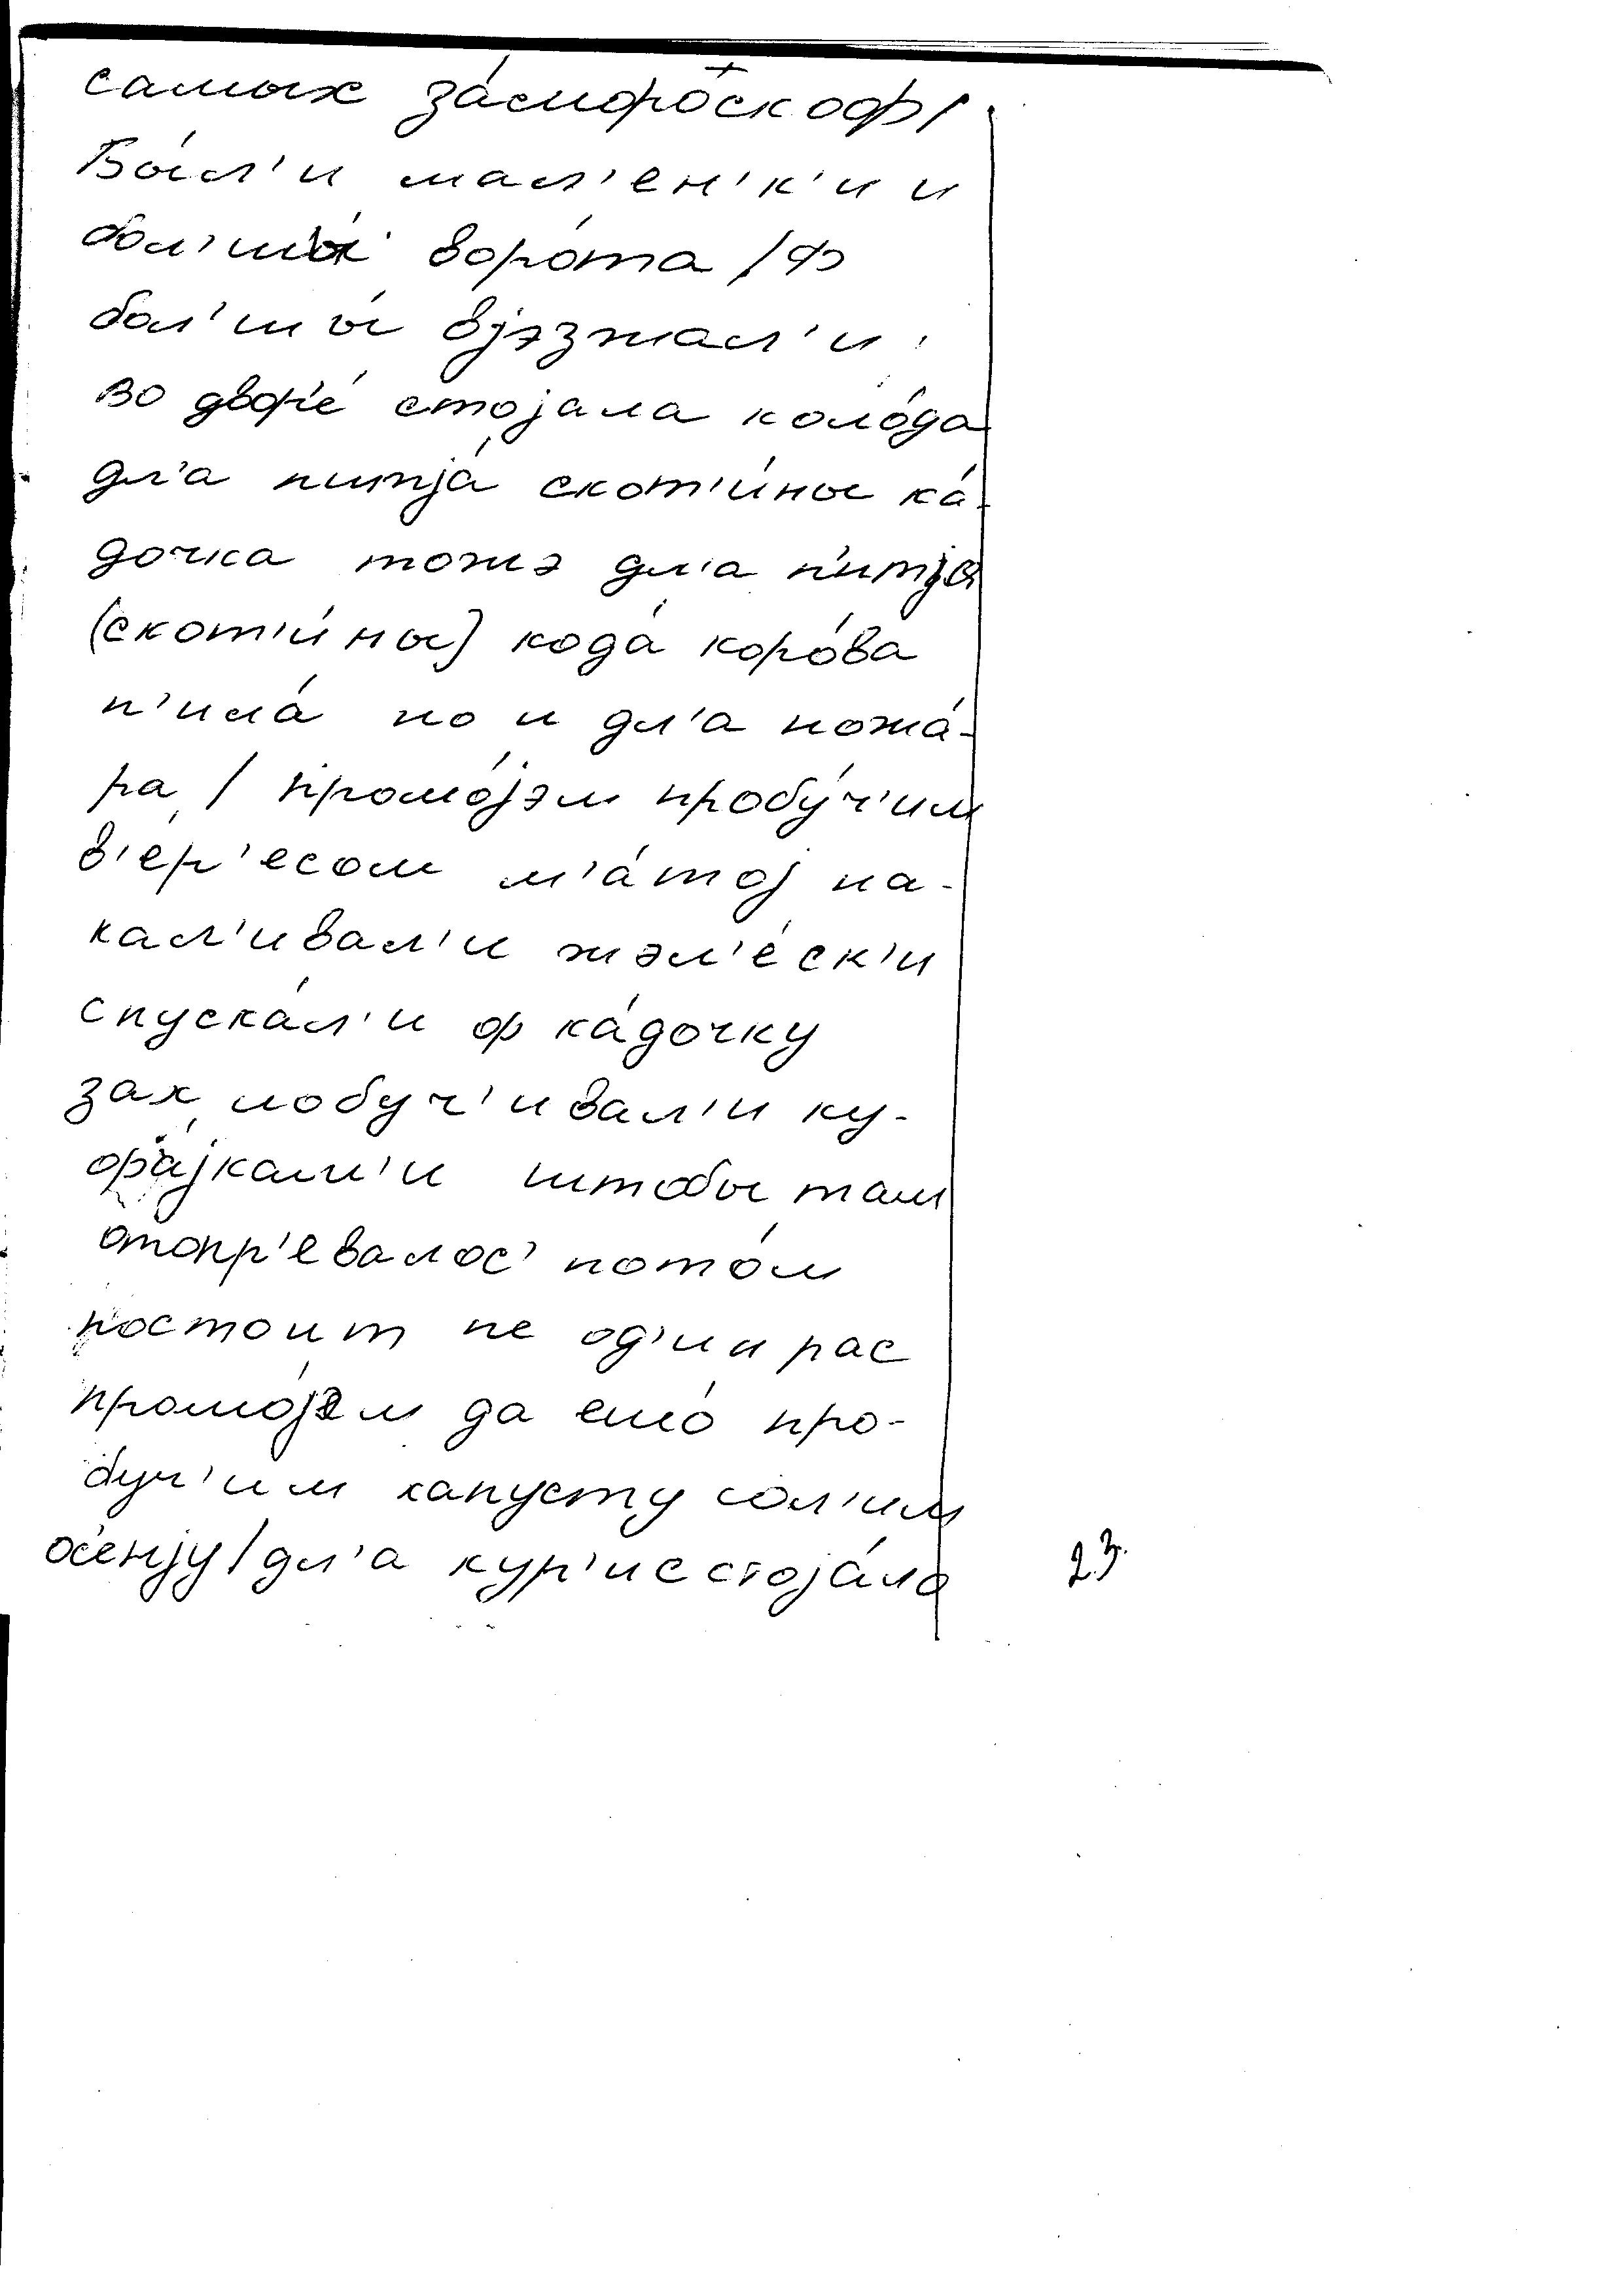 самых за́моро́скоф/
Бы́л'и мал'ен'к'и и
бол'шы́ воро́та / Ф
бол'шы́ вjэзжал'и.
во двор'е́ стоjала коло́да
дл'а питjа́ скот'и́ны ка́-
дочка тожэ дл'а п'итjа
(скот'и́ны) када́ коро́ва
п'ила́ но и дл'а пожа́-
ра / промо́jэм пробу́ч'им
в'е́р'есом м'а́тоj на-
кал'ивал'и жэл'е́ск'и
спуска́л'и ф ка́дочку
зах лобуч'ивал'и ку-
фа́jкам'и штобы там
отопр'евалос' пото́м
постоит не од'ин рас
промо́jэм да ешо́ про-
буч'им капусту сол'им
о́с'енjу / дл'а кур'ис стоjа́ла
23.